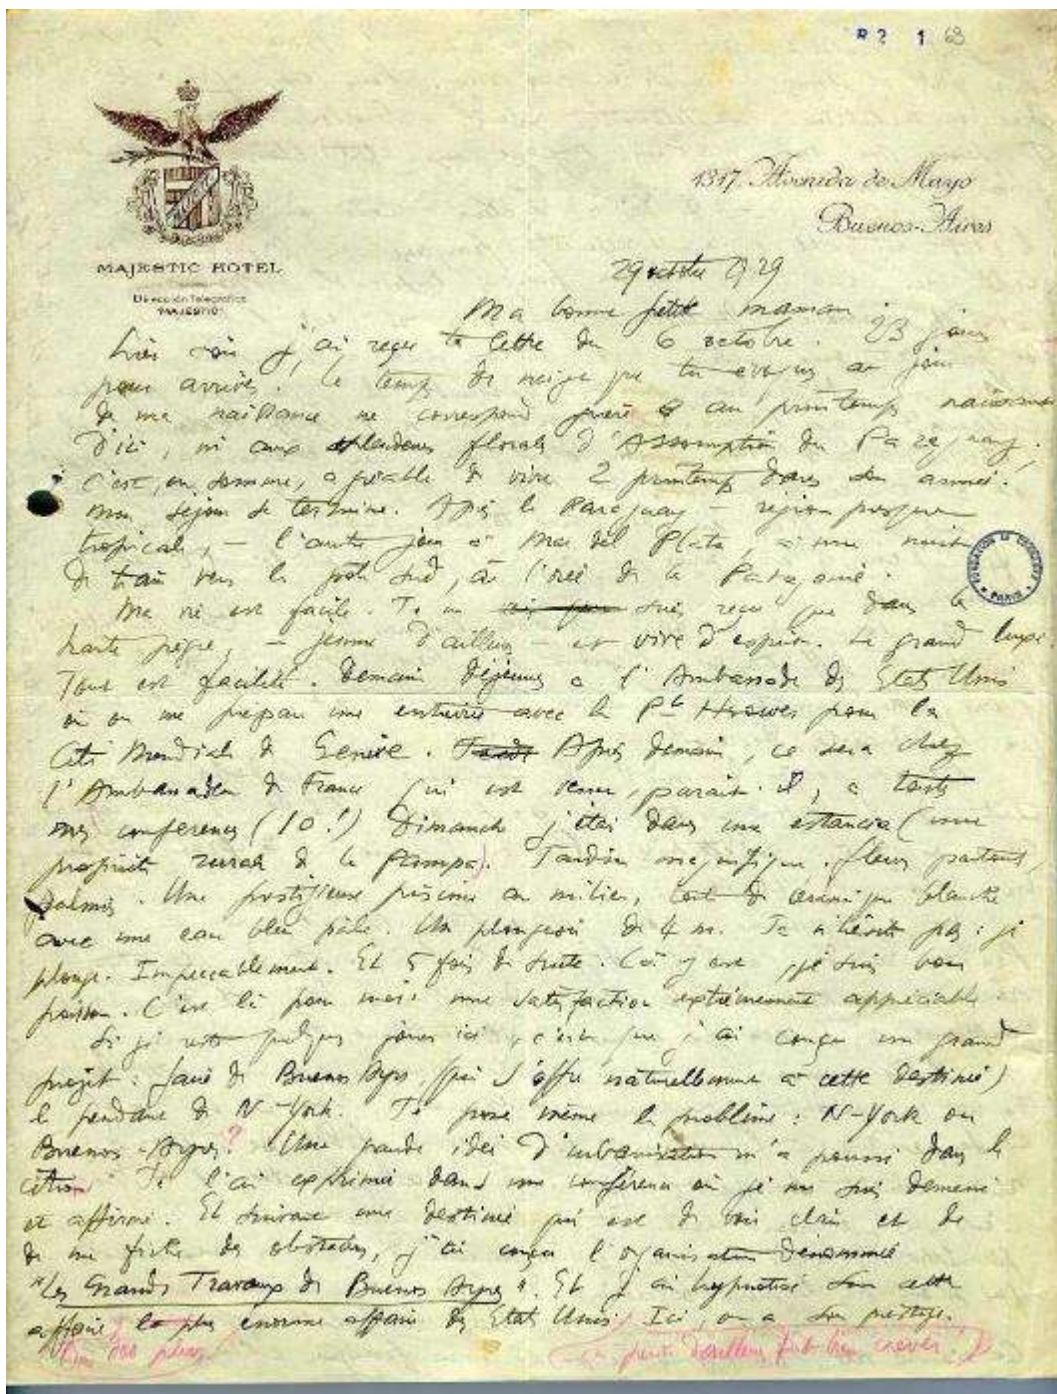 R2 1 63
1317, Avenida de Mayo
Buenos-Aires
MAJESTIC HOTEL
Dirección Telegráfica
"MAJESTIC"
29 octobre 1929
Ma bonne petite maman
Hier soir j'ai reçu ta lettre du 6 octobre. 23 jours
pour arriver! Le temps de neige que tu évoques au jour
de ma naissance ne correspond guère au printemps
d'ici, ni aux splendeurs florales d'Assomption du Paraguay.
C'est, en somme, agréable de vivre 2 printemps dans son année.
Mon séjour se termine. Après le Paraguay – région presque
tropicale, – l'autre jour à Mar del Plata, à une nuit
de train vers le pôle sud, à l'orée de la Patagonie.
Ma vie est facile. Je ne suis reçu que dans la
haute pègre, – jeune d'ailleurs – et vive d'esprit. Le grand luxe.
Tout est facilité. Demain déjeuner à l'Ambassade des Etats Unis
où on me prépare une entrevue avec le Pt Hoover pour la
Cité Mondiale de Genève. Après demain, ce sera chez
l'Ambassadeur de France qui est venu, paraît-il, à toutes
mes conférences (10!) Dimanche j'étais dans une estancia (une
propriété rurale de la Pampa). Jardin magnifique, fleurs partout,
palmiers. Une prestigieuse piscine au milieu, tout de céramique blanche
avec une eau bleu pâle. Un plongeoir de 4 m. Je n'hésite pas: je
plonge. Impeccablement. Et 5 fois de suite. Ça y est, je suis bon
poisson. C'est là pour moi une satisfaction extrêmement appréciable.
Si je reste quelques jours ici, c'est que j'ai conçu un grand
projet: faire de Buenos Ayres (qui s'offre naturellement à cette destinée)
le pendant de N-York. Je pose même le problème: N-York ou
Buenos-Ayres? Une grande idée d'urbanisation m'a poussé dans
l'action. Je l'ai exprimée dans une conférence où je me suis démené
et affirmé. Et suivant une destinée qui est de voir clair et de
de me ficher des obstacles, j'ai conçu l'organisation dénommée
"Les Grands Travaux de Buenos Ayres". Et j'ai hypnotisé sur cette
affaire la plus énorme affaire des Etats Unis. Ici, on a du prestige.
FONDATION LE CORBUSIER
PARIS